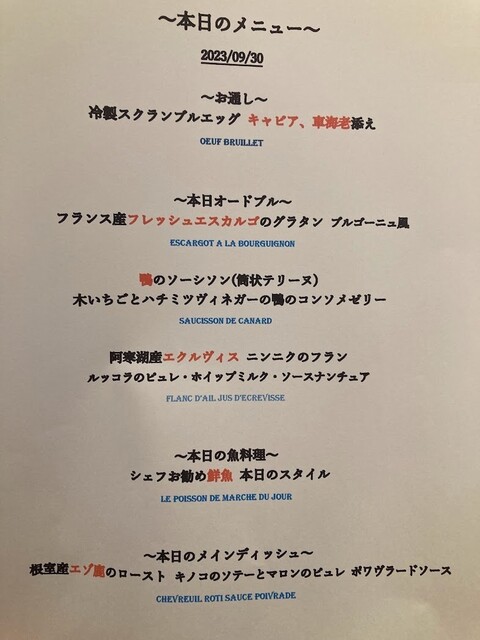 ～本日のメニュー～
2023/09/30
～お通し～
冷製スクランブルエッグ キャビア、車海老添え
OEUF BRUILLET
～本日オードブル～
フランス産フレッシュエスカルゴのグラタン ブルゴーニュ風
ESCARGOT A LA BOURGUIGNON
鴨のソーシソン(筒状テリーヌ)
木いちごとハチミツヴィネガーの鴨のコンソメゼリー
SAUCISSON DE CANARD
阿寒湖産エクルヴィス ニンニクのフラン
ルッコラのピュレ・ホイップミルク・ソースナンチュア
FLANC D'AIL JUS D'ECREVISSE
～本日の魚料理～
シェフお勧め鮮魚 本日のスタイル
LE POISSON DE MARCHE DU JOUR
～本日のメインディッシュ～
根室産エゾ鹿のロースト キノコのソテーとマロンのピュレ ポワヴラードソース
CHEVREUIL ROTI SAUCE POIVRADE